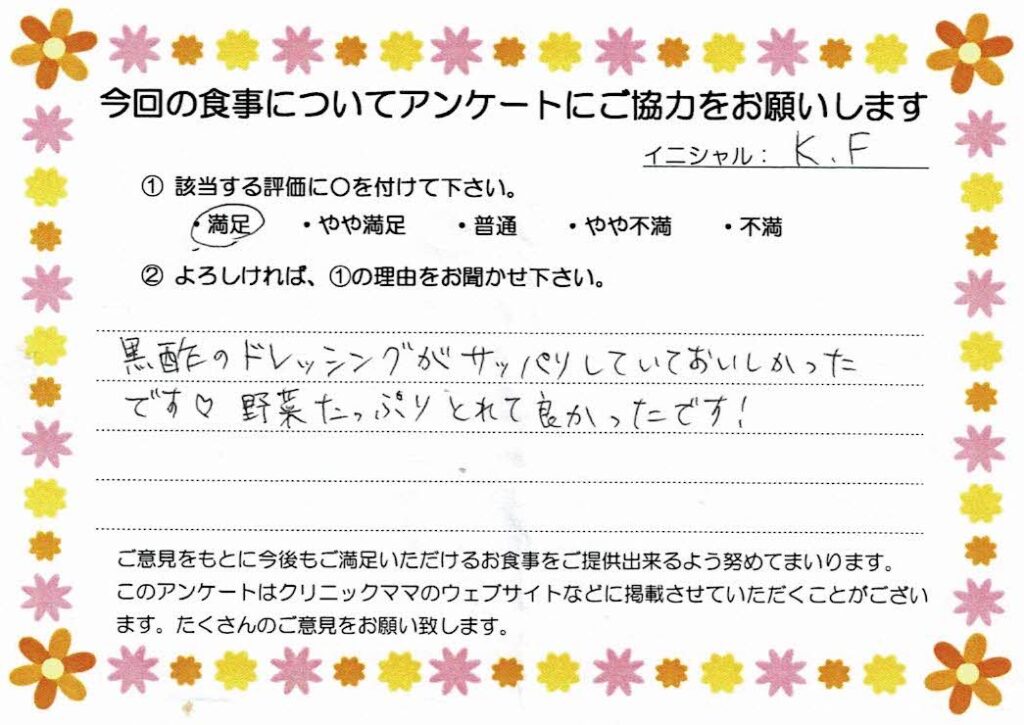 今回の食事についてアンケートにご協力をお願いします
イニシャル: K.F
① 該当する評価に〇を付けて下さい。
・満足 ・やや満足 ・普通 ・やや不満 ・不満
② よろしければ、①の理由をお聞かせ下さい。
黒酢のドレッシングがサッパリしていておいしかった
です♡ 野菜たっぷりとれて良かったです!
ご意見をもとに今後もご満足いただけるお食事をご提供出来るよう努めてまいります。
このアンケートはクリニックママのウェブサイトなどに掲載させていただくことがござい
ます。たくさんのご意見をお願い致します。